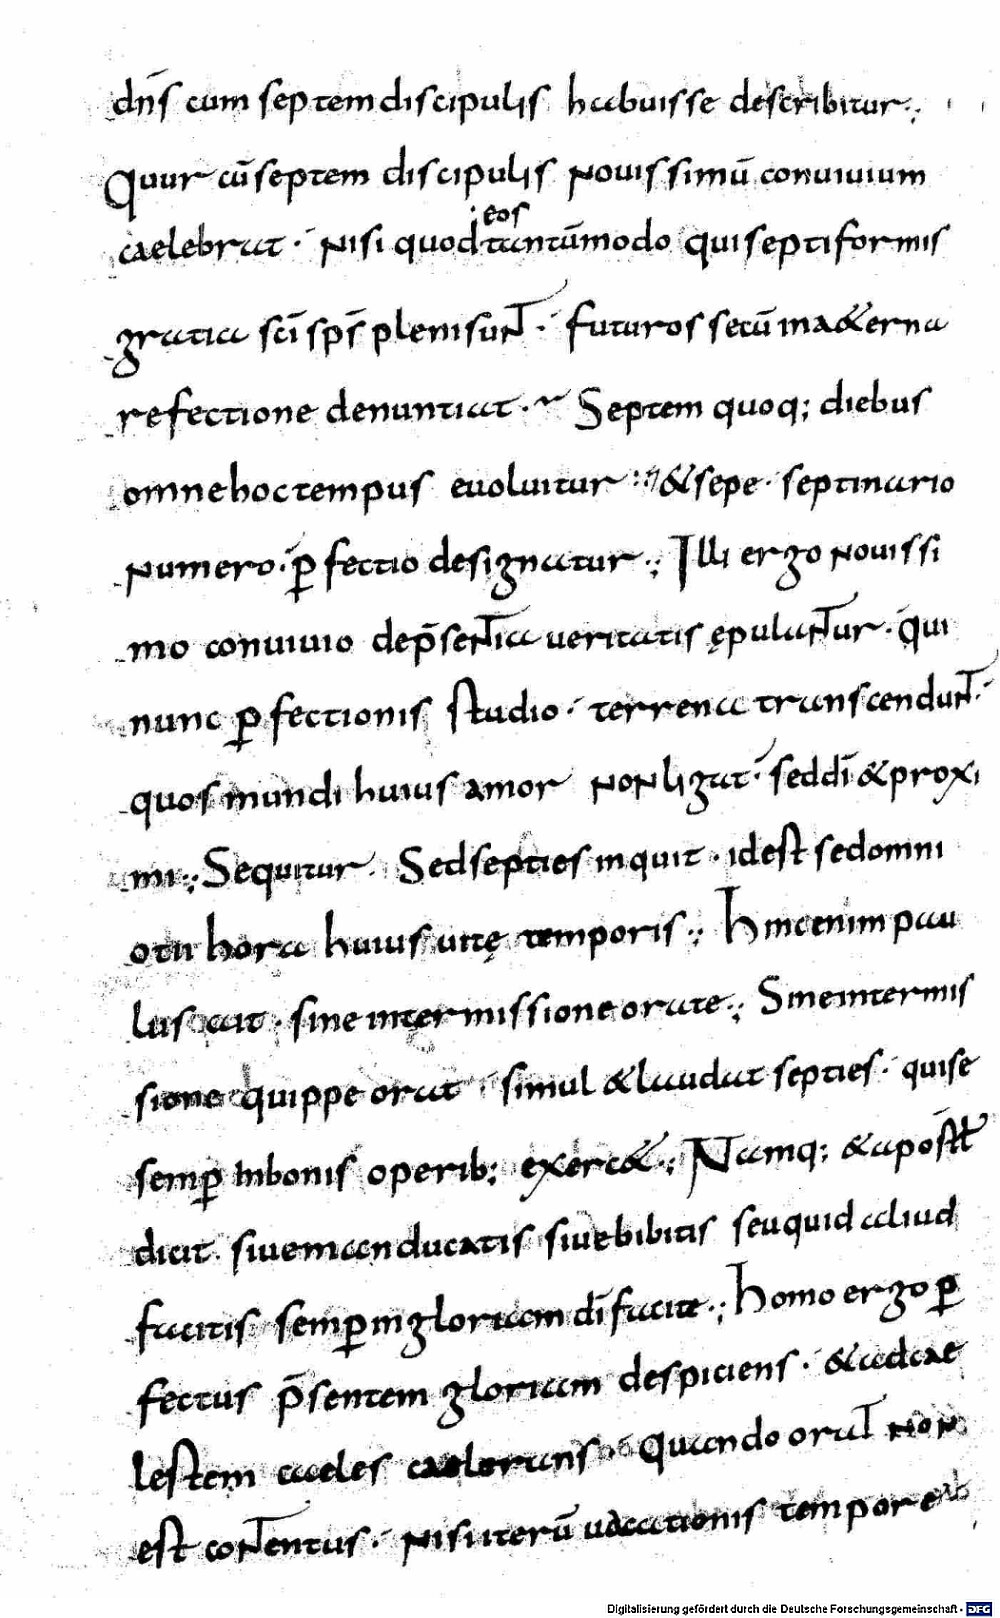 dñs cum septem discipulis habuisse describitur.,
Quur cū septem discipulis novissimū convivium
caelebrat · Nisi quod eos tantūmodo qui septiformis
gratia sc̄i sp̄s pleni sunt · futuros secū in a&erna
refectione denuntiat · Septem quoq; diebus
omne hoc tempus evolvitur · & sepe · septinario
numero · ꝑfectio designatur ., Illi ergo novissi
mo convivio de p̄sentia veritatis ępulantur · qui
nunc ꝑfectionis studio · terrena transcendunt ·
quos mundi huius amor non ligat · sed dī & proxi
mi ., Sequitur Sed septies inquit · id est sed omni
otii hora huius vitę temporis ., Hinc enim pau
lus ait · sine intermissione orate ., Sine intermis
sione quippe orat · simul & laudat septies · qui se
semꝑ in bonis operib; exerc& ., Namq; & apost̄
dicit · sive manducatis sive bibitis seu quid aliud
facitis semꝑ in gloriam dī facite ., Homo ergo ꝑ
fectus p̄sentem gloriam despiciens · & ad cae
lestem caelerans · Quando orat non
est contentus · nisi iterū vacationis tempore
Digitalisierung gefördert durch die Deutsche Forschungsgemeinschaft - DFG